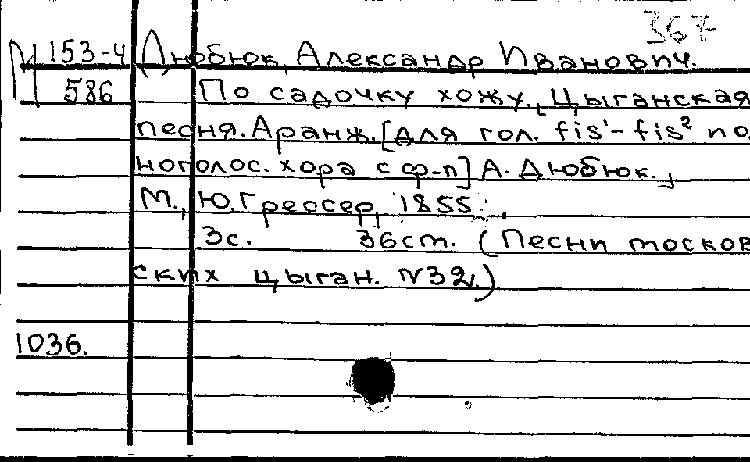 367
М 153-4 Дюбюк, Александр Иванович.
586 По садочку хожу. [Цыганская
песня. Аранж. [для гол. fis¹-fis² по
ноголос. хора с ф-п] А. Дюбюк.]
М., Ю. Грессер, 1855.
3с. 36см. (Песни москов
ских цыган. №32.)
1036.